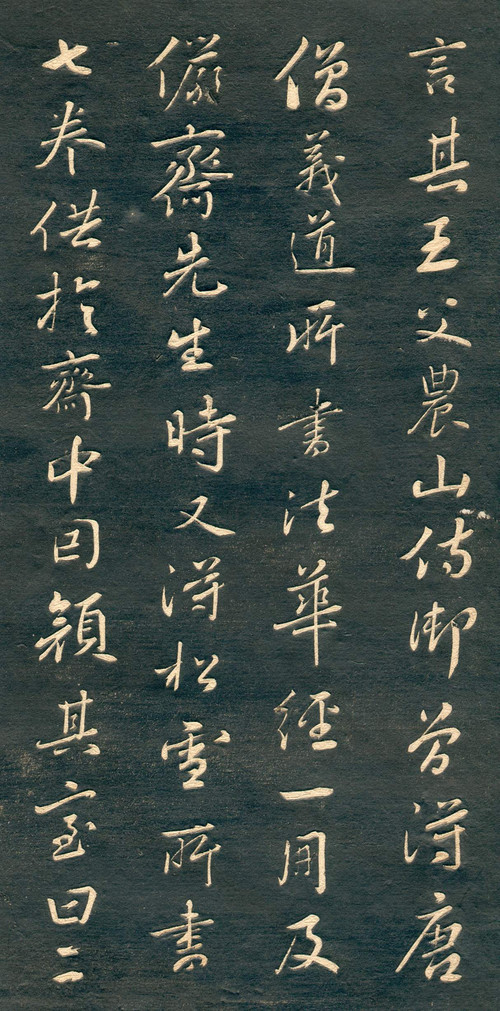 言其王父農山侍御曽得唐
僧義道所書法華經一冊及
儼齋先生時又得松雪所書
七卷借於齋中因顏其室曰二